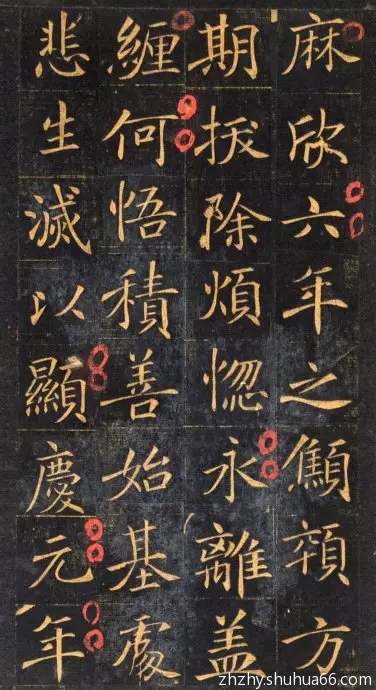 麻欣六年之顦顇方
期拔除煩惚永離盖
纏何悟積善始基處
悲生滅以顯慶元年
zhzhy.shuhua66.com